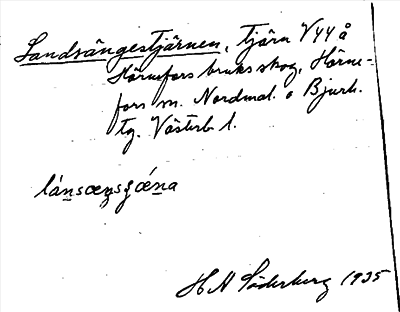 Landsängestjärnen, tjärn V44 å
Hörnefors bruks skog, Hörne-
fors sn. Nordmal. o Bjurh.
tg. Västerb l.
H H Söderberg 1935